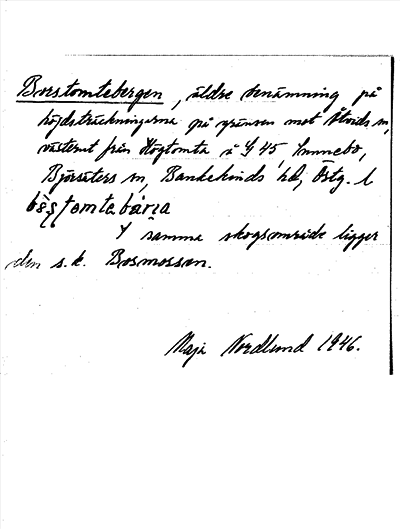 Borstomtebergen, äldre benämning på
höjdsträckningarna på gränsen mot Åtvids sn,
västerut från Högtomta å G 45, Sunnebo,
Björsäters sn, Bankekinds hd, Östg. l
I samma skogsområde ligger
den s.k. Bosmossen.
Maja Nordlund 1946.